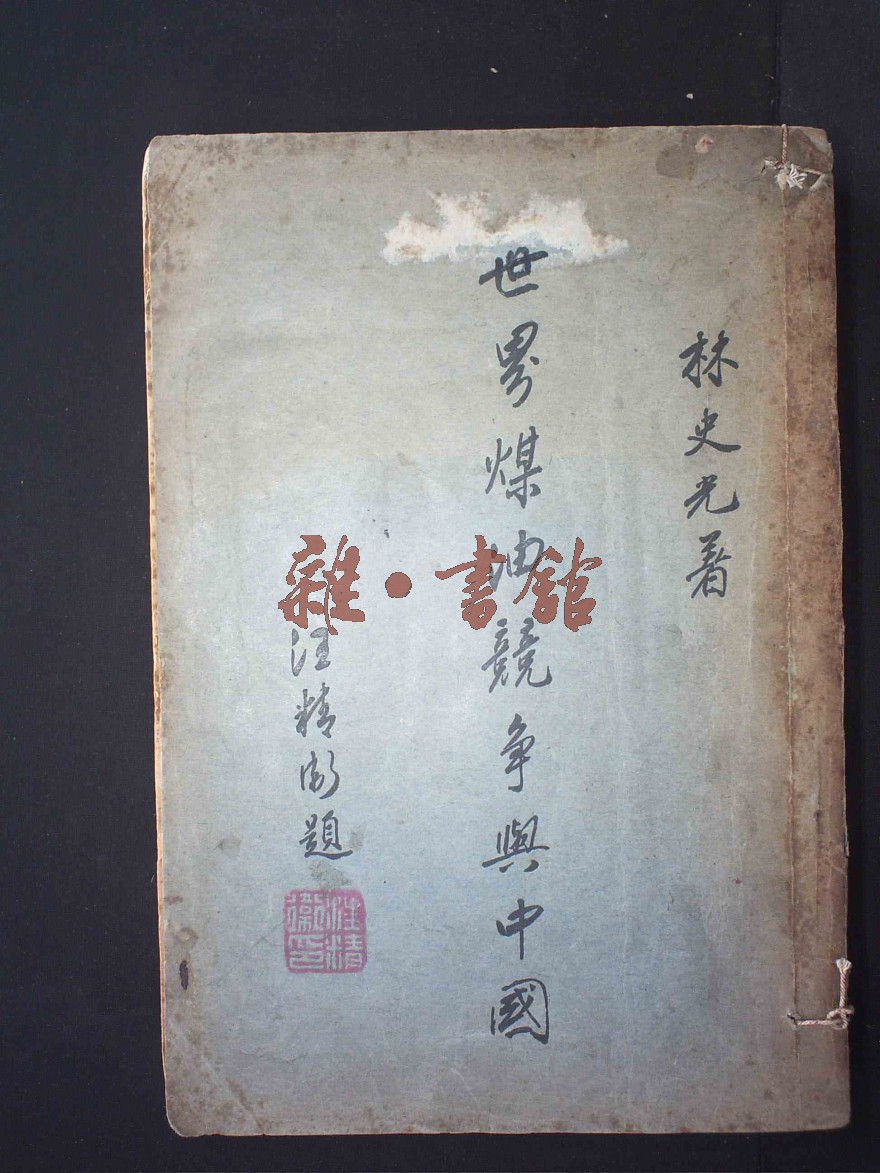 林史光著
世界煤油競争與中國
汪精衛題
汪精衛印
雜·書館